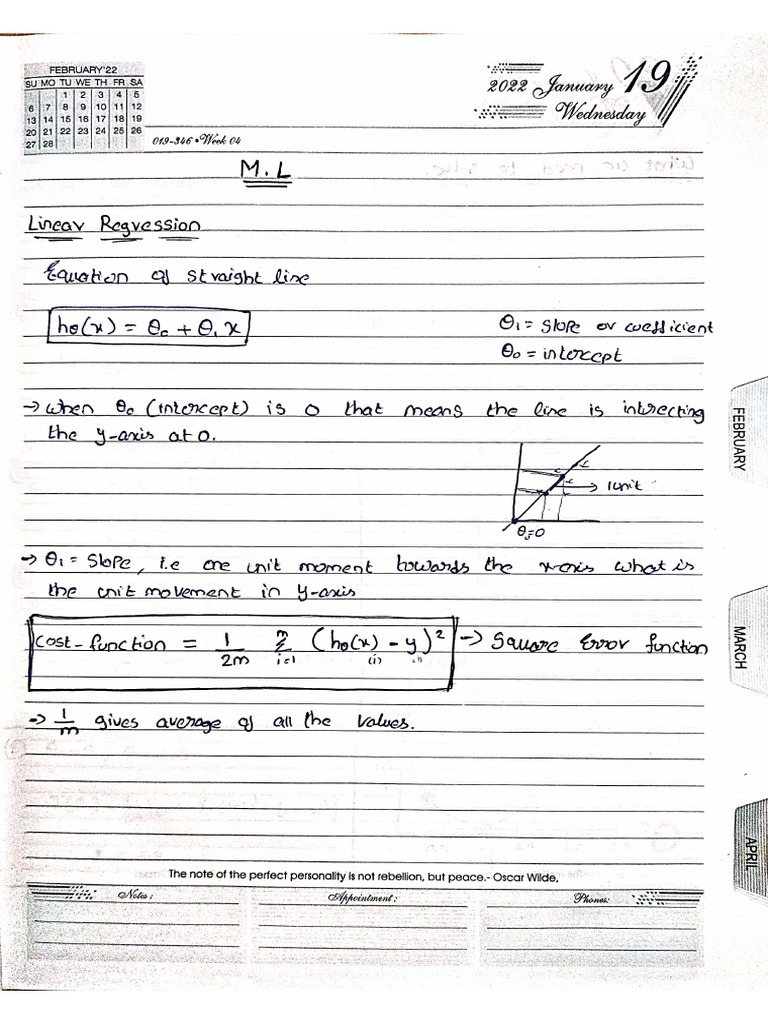 FEBRUARY'22
SU MO TU WE TH FR SA
1 2 3 4 5
6 7 8 9 10 11 12
13 14 15 16 17 18 19
20 21 22 23 24 25 26
27 28
2022 January 19
Wednesday
019-346 • Week 04
M.L
Linear Regression
Equation of straight line
hθ(x) = θ₀ + θ₁x
θ₁ = slope or coefficient
θ₀ = intercept
→ when θ₀ (intercept) is 0 that means the line is intrecting
the y-axis at 0.
→ 1unit
θ₀=0
→ θ₁ = slope, i.e one unit moment towards the x-axis what is
the unit movement in y-axis
cost-function = 1/2m Σ i=1 m (hθ(x)(i) - y(i))² → Square Error function
→ 1/m gives average of all the values.
The note of the perfect personality is not rebellion, but peace.- Oscar Wilde,
Notes :
Appointment :
Phones:
FEBRUARY
MARCH
APRIL